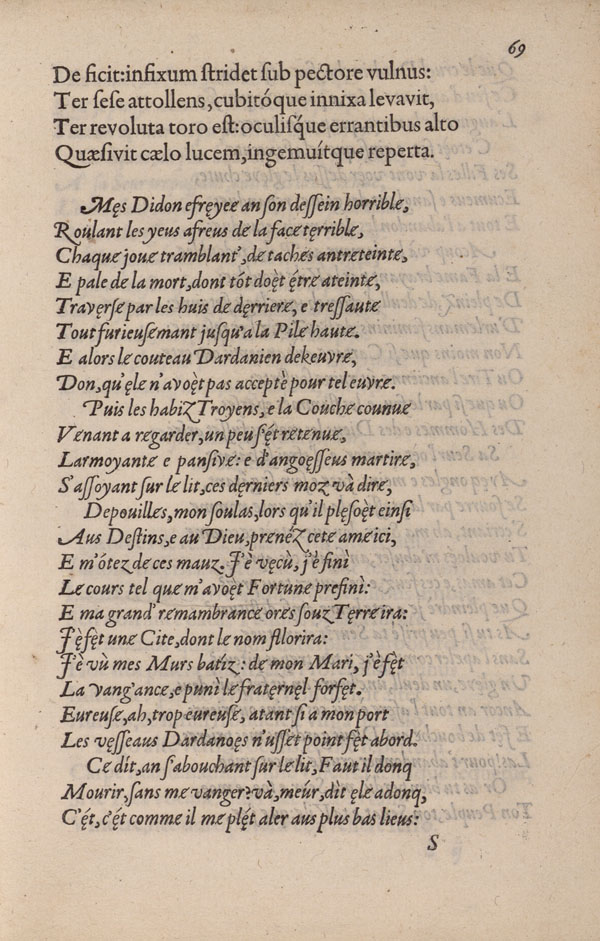 69
De ficit:infixum ſtridet ſub pectore vulnus:
Ter ſeſe attollens,cubitóque innixa levavit,
Ter revoluta toro eſt:oculiſq́ue errantibus alto
Quæſivit cælo lucem,ingemuítque reperta.
Męs Didon efreyee an ſon deſſein horrible,
Roulant les yeus afreus de la face tęrrible,
Chaque joue tramblant', de taches antreteinte,
E pale de la mort,dont tót doęt ę́tre ateinte,
Travęrſe par les huis de dęrriere, e treſſaute
Tout furieuſemant juſqu'a la Pile haute.
E alors le couteau Dardanien dekeuvre,
Don,qu'ęle n'avoęt pas acceptè pour tel euvre.
Puis les habiz Troyens, e la Couche counue
Venant a regarder,un peu s'ę́t retenue,
Larmoyante e panſive: e d'angoęſſeus martire,
S'aſſoyant ſur le lit,ces dęrniers moz và dire,
Depouilles,mon ſoulas,lors qu'il plęſoęt einſi
Aus Deſtins,e au Dieu,prenéz cete ame ici,
E m'ótez de ces mauz. J'è vęcù, j'è finì
Le cours tel que m'avoęt Fortune prefinì:
E ma grand' remambrance ores ſouz Tęrre ira:
J'è fęt une Cite,dont le nom florira:
J'è vù mes Murs batiz: de mon Mari, j'è fęt
La vang'ance,e punì le fratęrnęl forfęt.
Eureuſe,ah,trop eureuſe, atant ſi a mon port
Les vęſſeaus Dardanoęs n'uſſet point fęt abord.
Ce dít,an s'abouchant ſur le lit,Faut il donq
Mourir,ſans me vanger?và,meúr,dit ęle adonq,
C'ę́t,c'ę́t comme il me plę́t aler aus plus bas lieus:
S